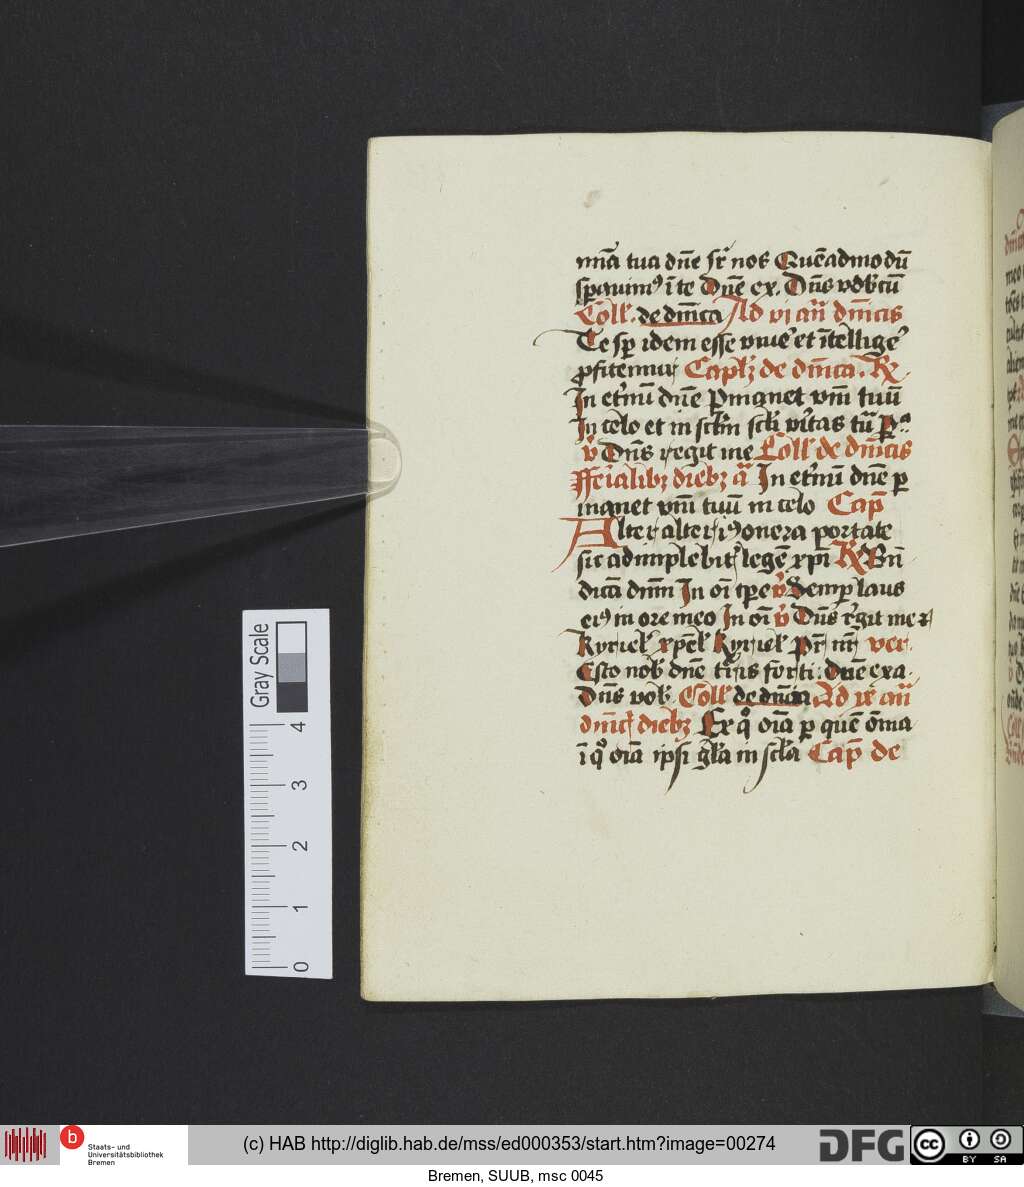 mīa tua dn̄e sr̄ nos Quēadmodū
sperauimꝰ ī te Dn̄e ex. Dn̄s vobcū
Coll. de dn̄ica Ad vi an̄ dn̄icis
Te sp̄ idem esse viuē et ītelligē
ꝓfitemur Caplꝫ de dn̄ica. ℟
In et̄nū dn̄e ꝑmanet vm̄ tuū
In celo et in sclm̄ scli vītas tū P̄
v̄ Dn̄s regit me Coll de dn̄icis
Fferialibꝫ diebꝫ a̅ In et̄nū dn̄e ꝑ
manet vm̄ tuū in celo Cap̄
Alter alteriꝰ onera portate
sic adimplebitꝭ legē xp̄i ℟ Bn̄
dicā dn̄m In oī tp̄e v̄ Semp̄ laus
eiꝰ in ore meo In oī v̄ Dn̄s r̄git me ⁊
Kyriel̄ xp̄el̄ Kyriel̄ Pr̄ nr̄ ver
Esto nob̄ dn̄e tr̄ris forti. Dn̄e exa.
Dn̄s vob̄. Coll̄ de dn̄ica Ad ix an̄
dn̄ic̄ diebꝫ Ex q̊ oīa ꝑ quē ōma
ī q̊ oīa ipsi gl̄a in scl̄a Cap̄ de
Gray Scale
4
3
2
1
0
b Staats- und
Universitätsbibliothek
Bremen
(c) HAB http://diglib.hab.de/mss/ed000353/start.htm?image=00274
DFG
cc BY SA
Bremen, SUUB, msc 0045